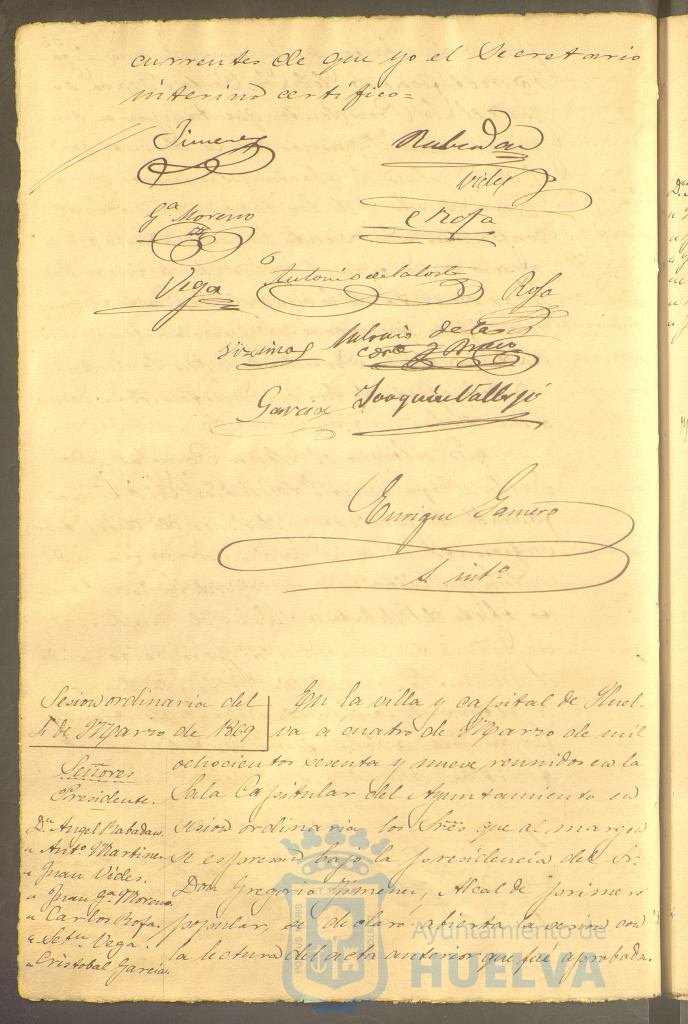 currentes de que yo el Secretario
interino certifico=
Jimenez
Rabadan
Vides
Ga. Moreno
C Rofa
Vega
Antonio de la Corte
Rofa
Antonio de la
Corte y Bravo
Garcia
Joaquin Vallejo
Enrique Gamero
S. into.
Sesion ordinaria del
4 de Marzo de 1869
Señores
Presidente.
Dn Angel Rabadan.
" Anto. Martinez.
" Juan Vides.
" Juan Ga. Moreno.
" Carlos Rofa.
" Setn. Vega.
" Cristobal Garcia.
En la villa y capital de Huel-
va á cuatro de Marzo de mil
ochocientos sesenta y nueve reunidos en la
Sala Capitular del Ayuntamiento en
sesion ordinaria los Sres que al margen
se espresan bajo la presidencia del Sr.
Don Gregorio Jimenez, Alcalde primero
popular, se declaró abierta la sesion con
la lectura del acta anterior que fué aprobada.
Ayuntamiento de
HUELVA